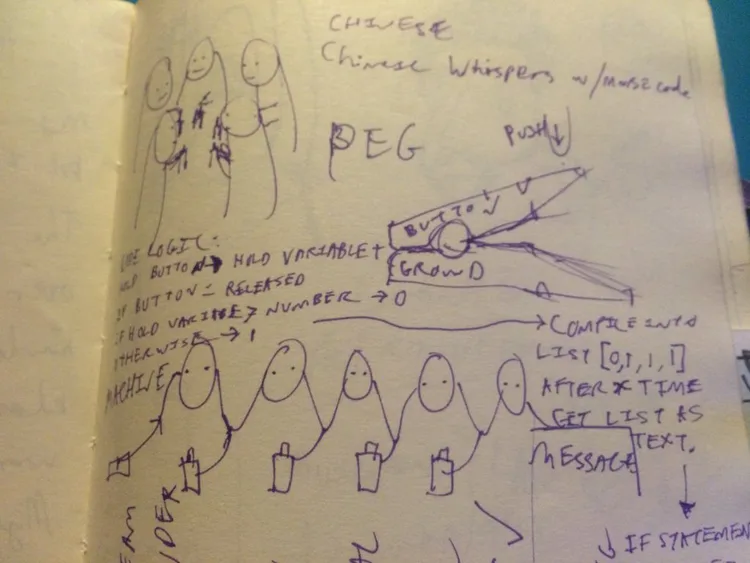 CHINESE
Chinese Whispers w/morse code
PEG
PUSH
BUTTON
GROUND
LOGIC:
HOLD BUTTON → HOLD VARIABLE +
IF BUTTON = RELEASED
IF HOLD VARIABLE > NUMBER → 0
OTHERWISE → 1
→ COMPILE INTO
LIST [0,1,1,1]
AFTER X TIME
GET LIST AS
TEXT.
MACHINE
MESSAGE
IF STATEMEN